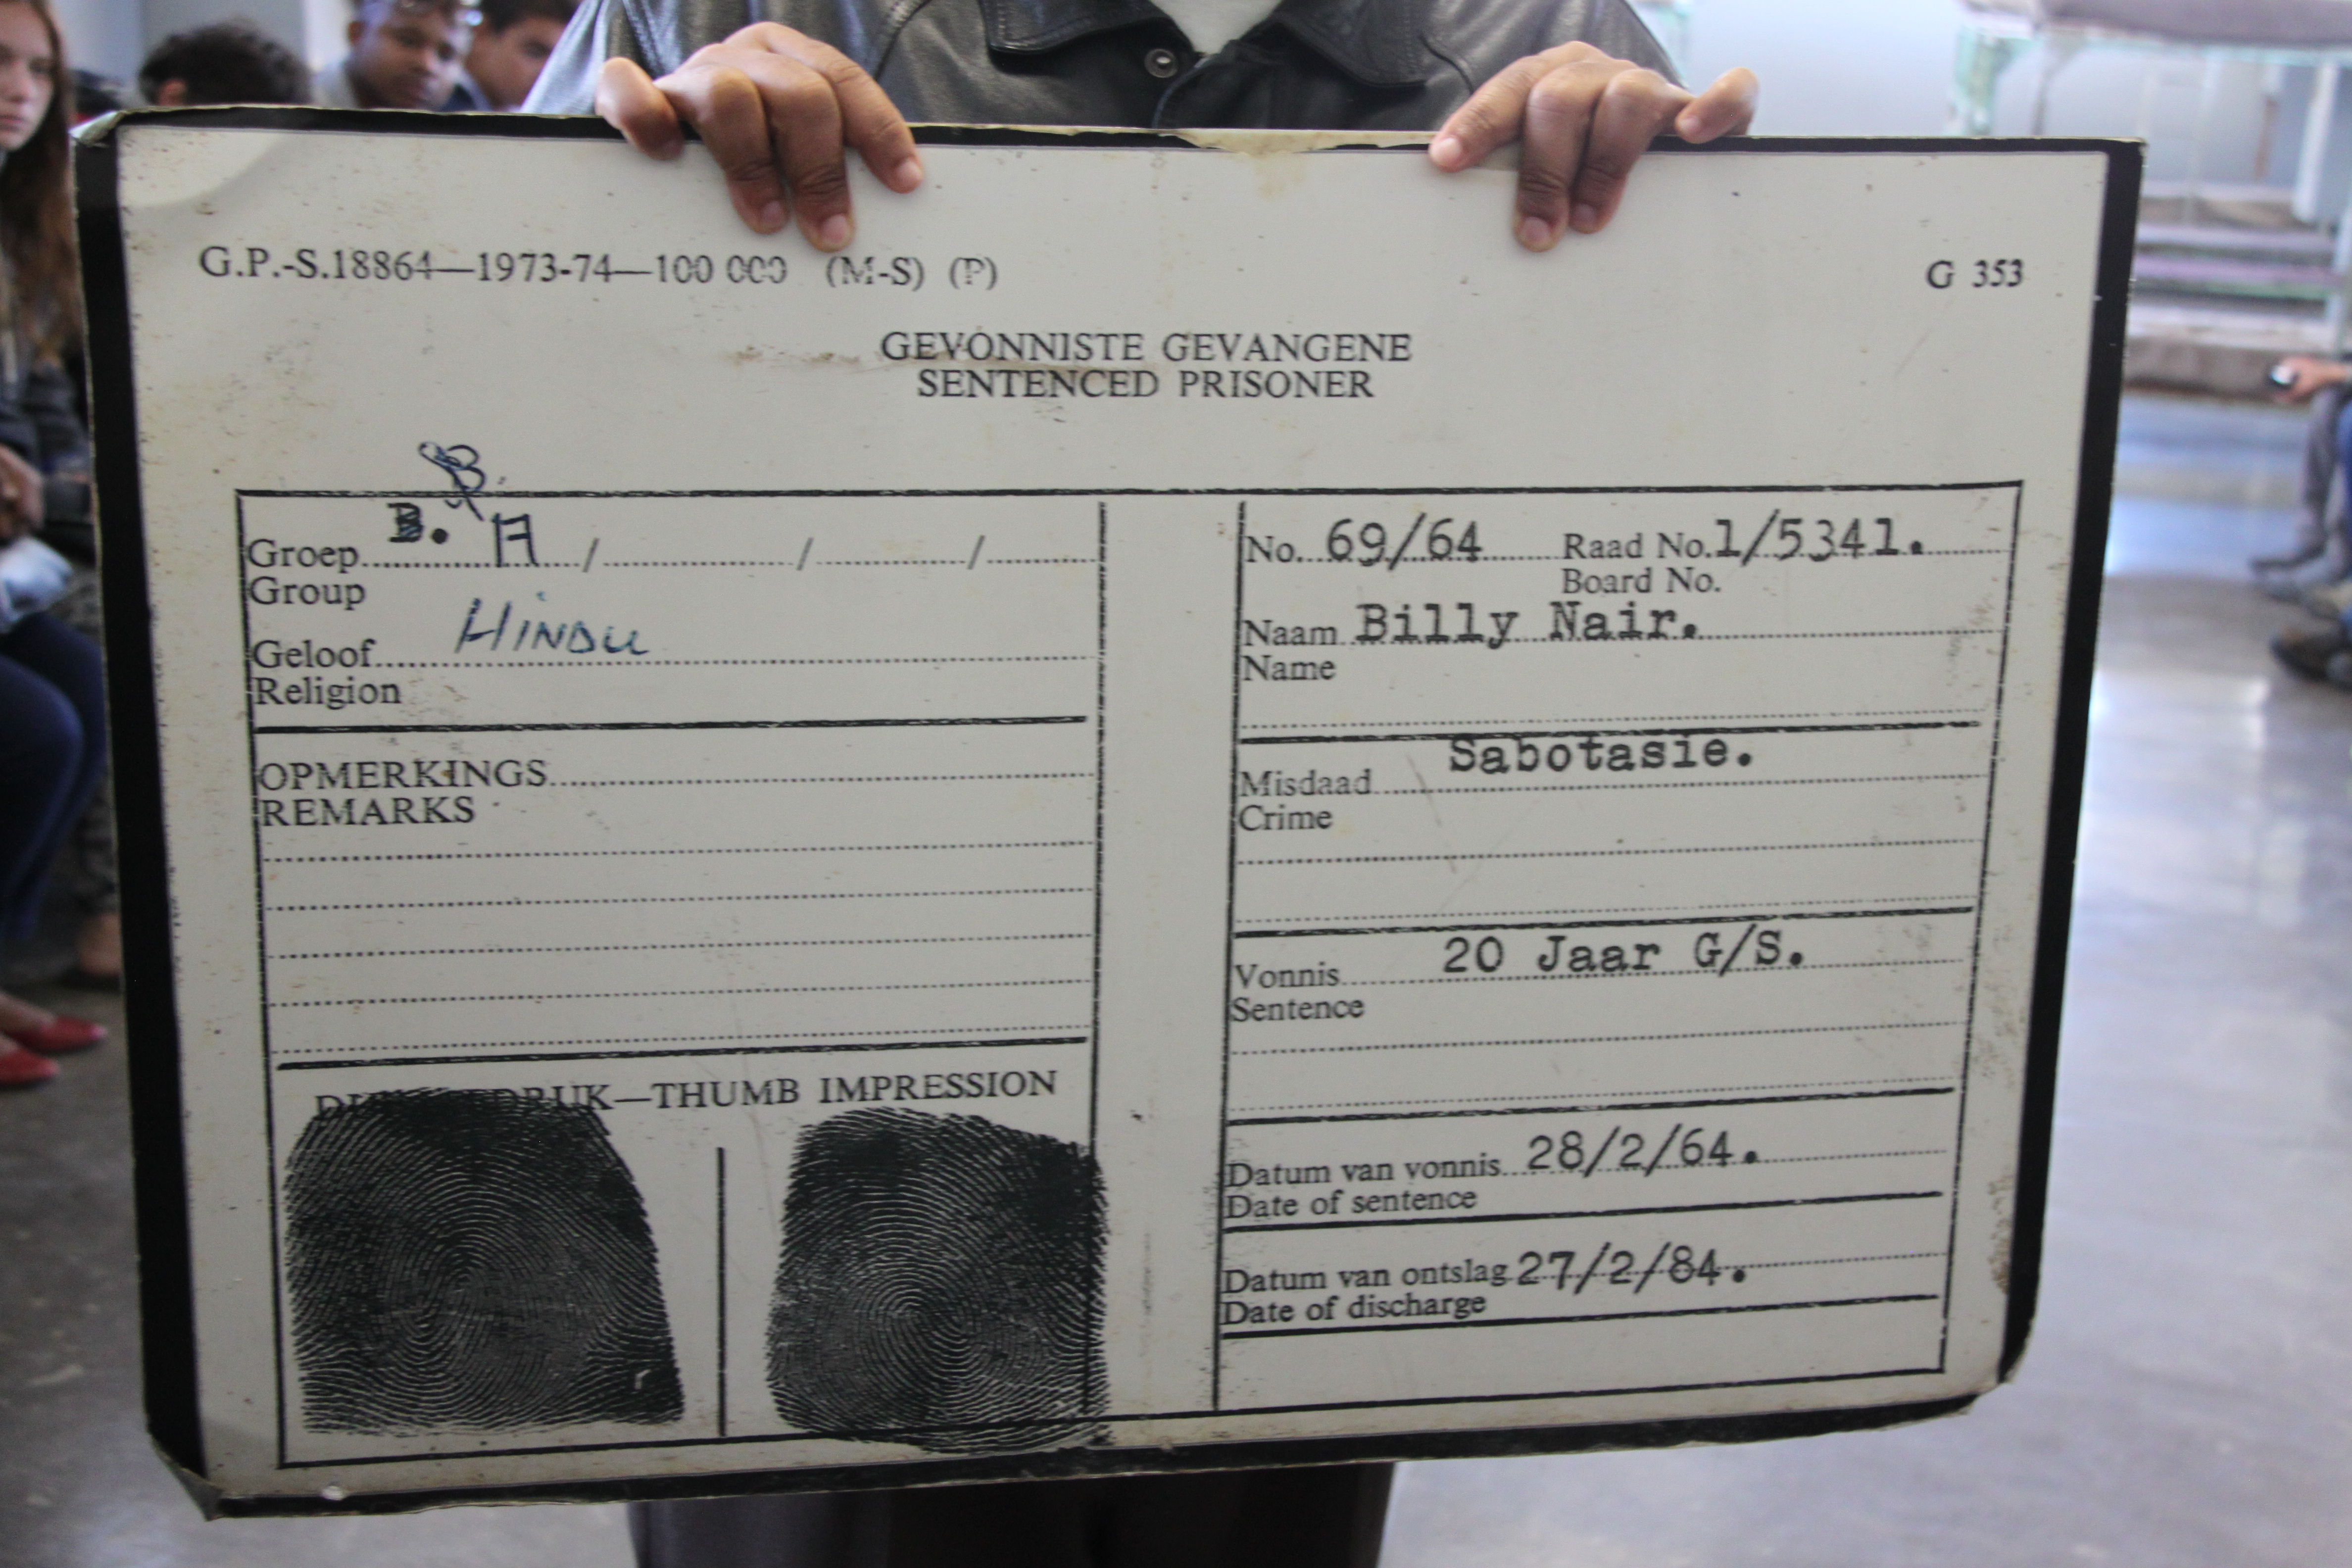 G.P.-S.18864—1973-74—100 000 (M-S) (P)
G 353
GEVONNISTE GEVANGENE
SENTENCED PRISONER
B.
Groep B. A / / /
Group
Geloof HINDU
Religion
OPMERKINGS
REMARKS
DRUK—THUMB IMPRESSION
No. 69/64 Raad No. 1/5341.
Board No.
Naam Billy Nair.
Name
Sabotasie.
Misdaad
Crime
Vonnis 20 Jaar G/S.
Sentence
Datum van vonnis 28/2/64.
Date of sentence
Datum van ontslag 27/2/84.
Date of discharge